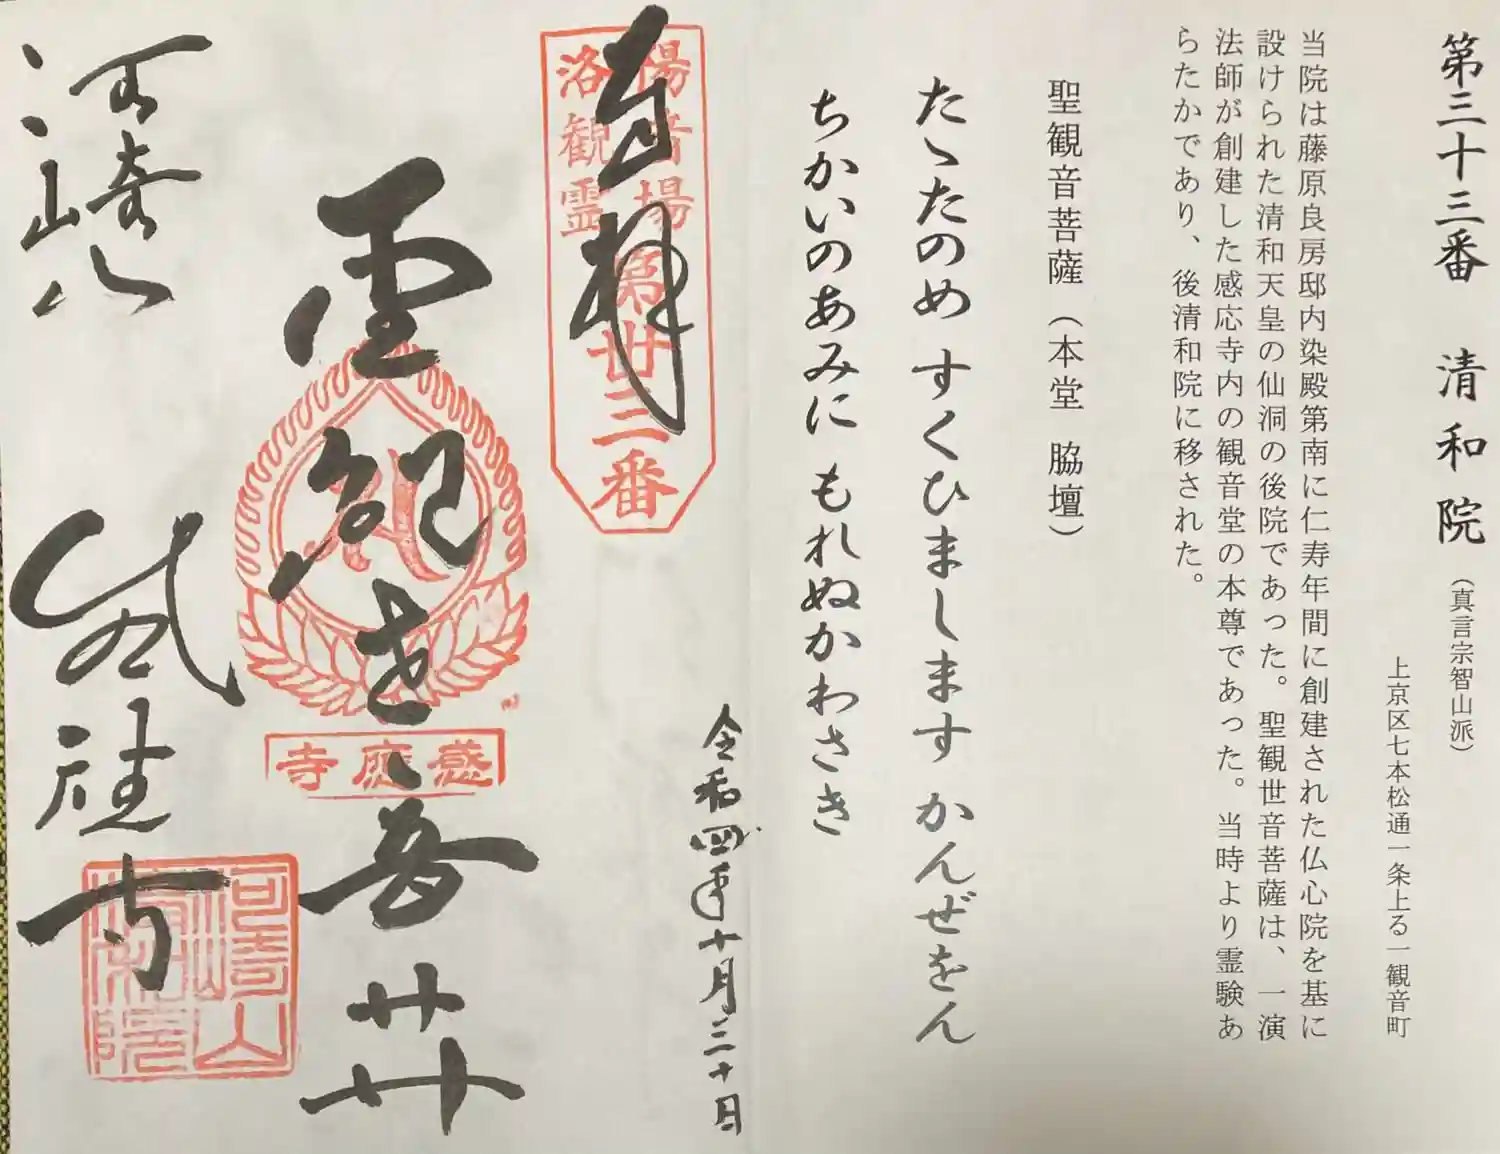 第三十三番 清和院 (真言宗智山派)
上京区七本松通一条上る一観音町
当院は藤原良房邸内染殿第南に仁寿年間に創建された仏心院を基に
設けられた清和天皇の仙洞の後院であった。聖観世音菩薩は、一演
法師が創建した感応寺内の観音堂の本尊であった。当時より霊験あ
らたかであり、後清和院に移された。
聖観音菩薩(本堂 脇壇)
たゝたのめ すくひましします かんぜをん
ちかいのあみに もれぬかわさき
奉拝
洛陽観音霊場
第卅三番
令和四年十月三十日
聖観世音
河崎
感應寺
感應寺
河崎山
清和院